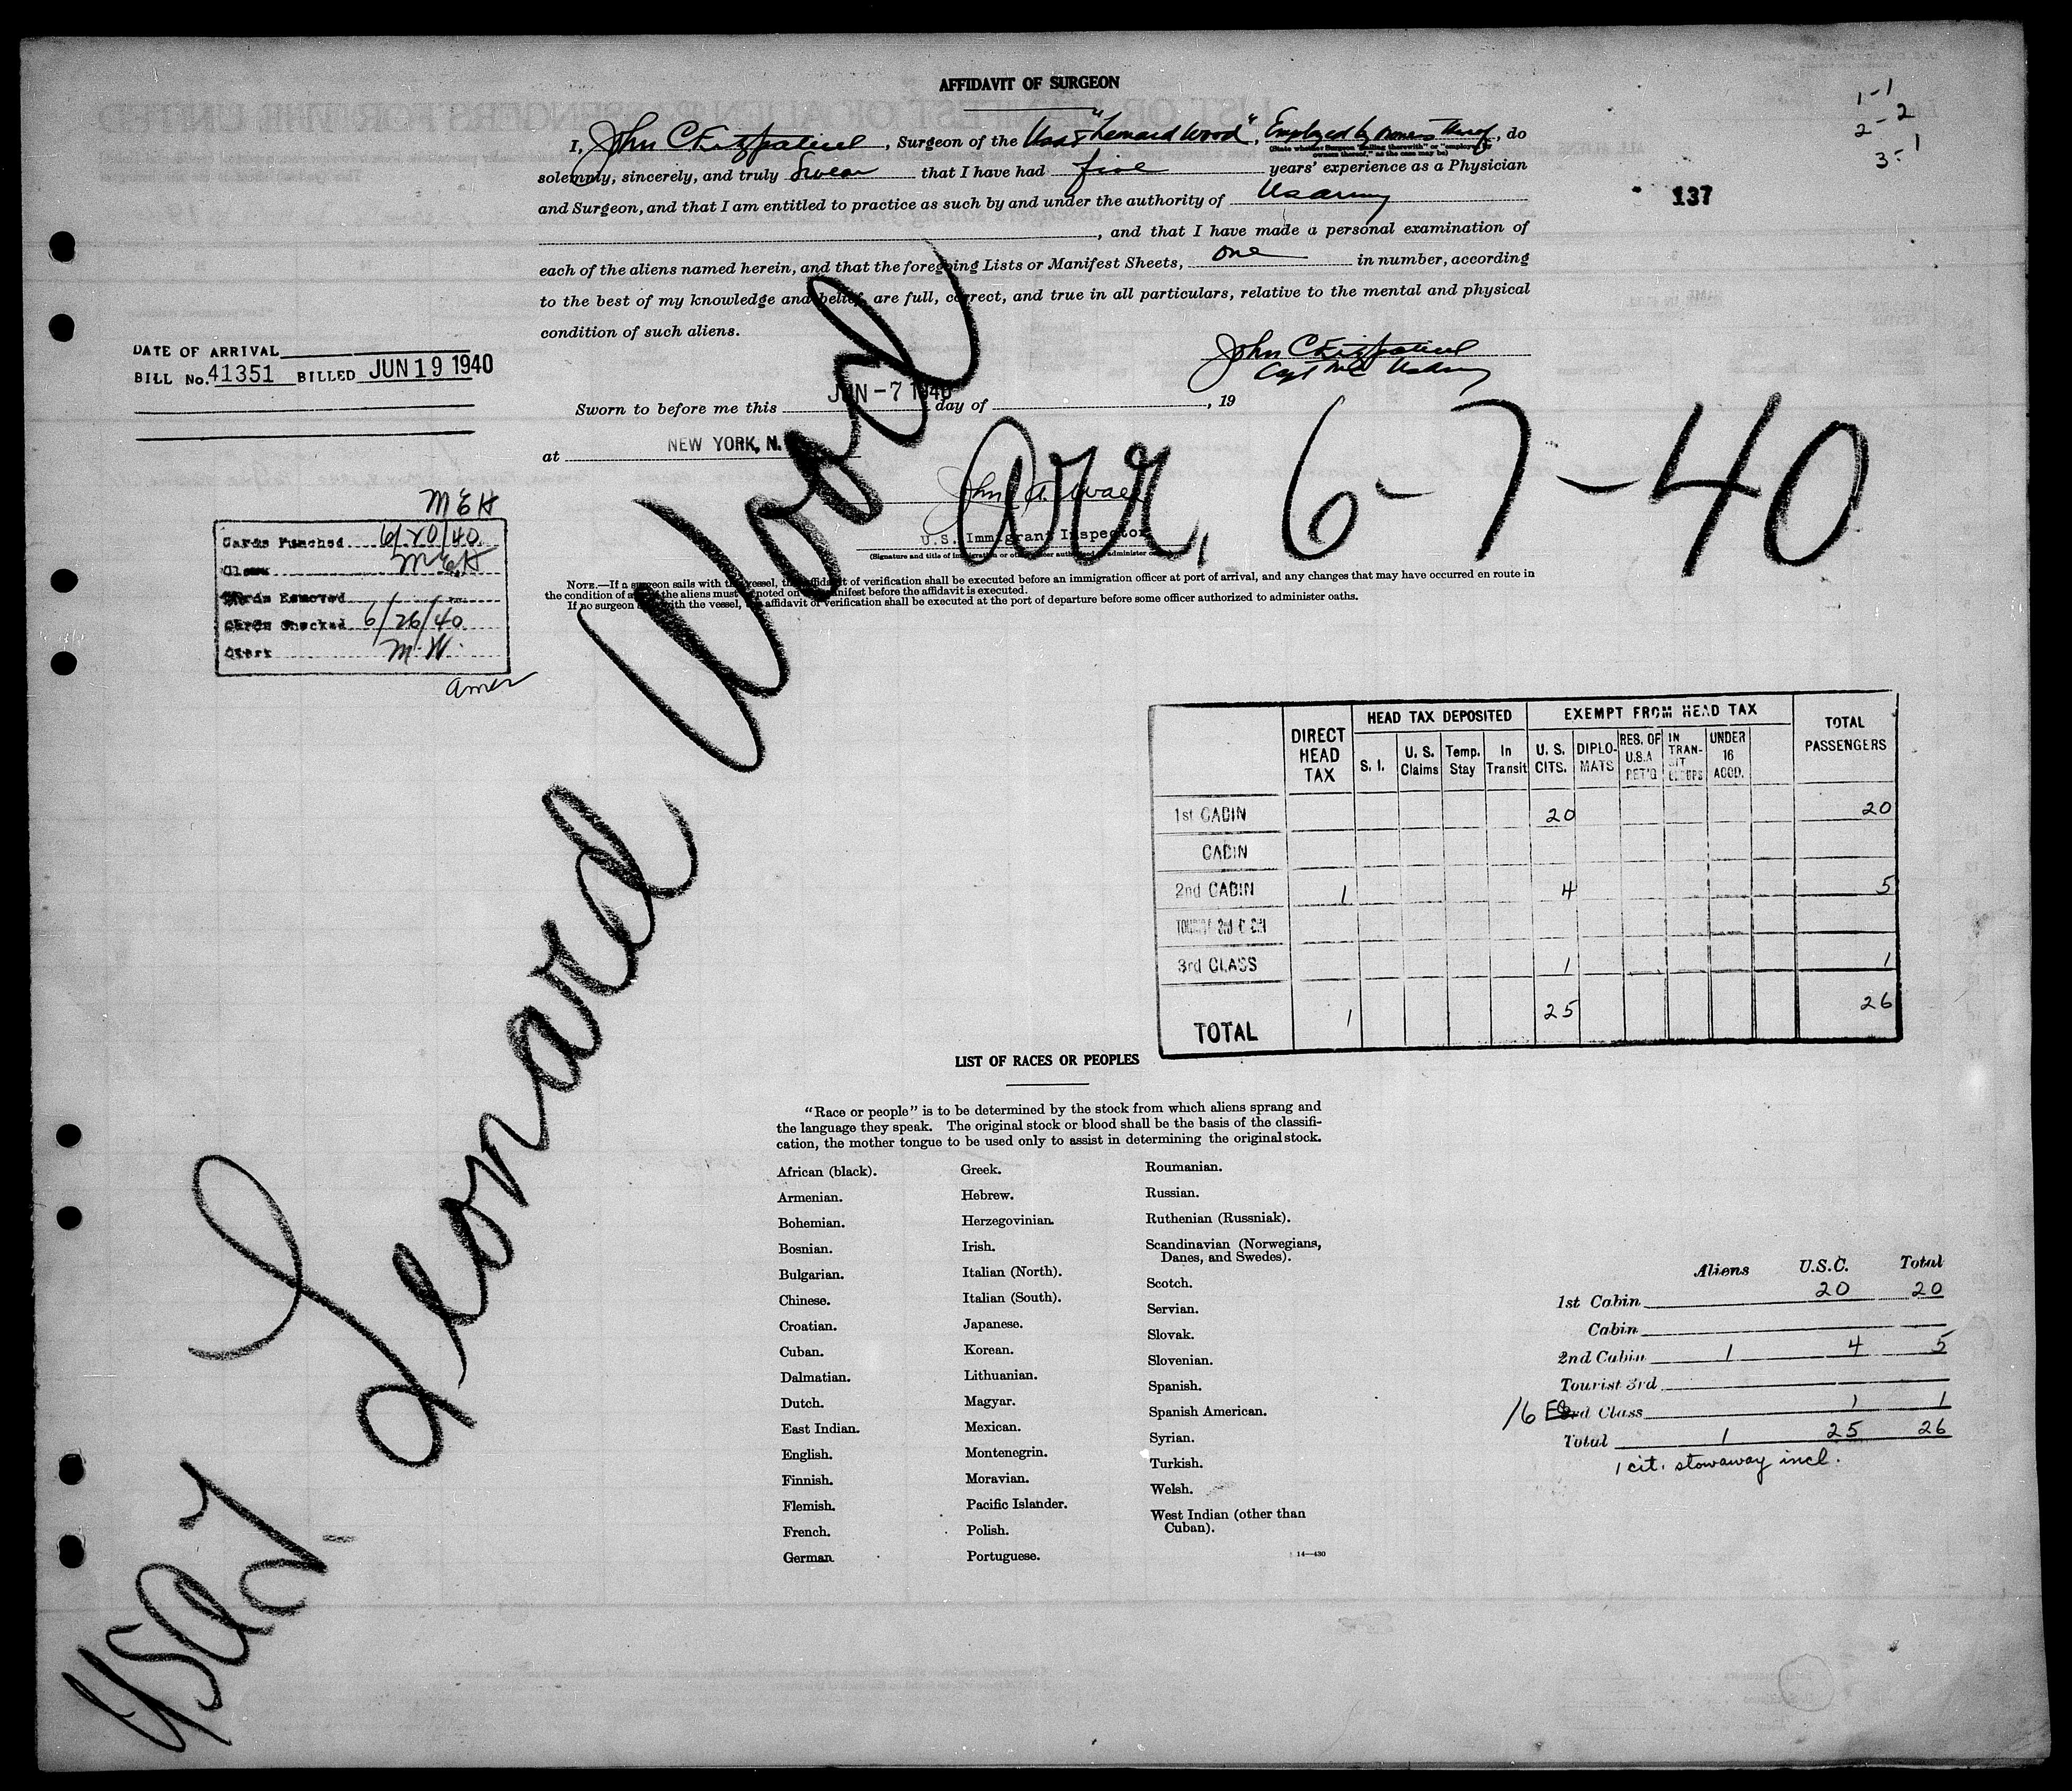 AFFIDAVIT OF SURGEON
I, John C Fitzpatrick, Surgeon of the USAT "Leonard Wood", Employed by owners thereof, do
(State whether Surgeon "sailing therewith" or "employed by owners thereof," as the case may be)
solemnly, sincerely, and truly Swear that I have had five years' experience as a Physician
and Surgeon, and that I am entitled to practice as such by and under the authority of US Army
, and that I have made a personal examination of
each of the aliens named herein, and that the foregoing Lists or Manifest Sheets, one in number, according
to the best of my knowledge and belief, are full, correct, and true in all particulars, relative to the mental and physical
condition of such aliens.
1-1
2-2
3-1
137
John C Fitzpatrick
Capt MC US Army
DATE OF ARRIVAL
BILL No. 41351 BILLED JUN 19 1940
Sworn to before me this JUN -7 1940 day of , 19
at NEW YORK, N.
John A.
U.S. Immigrant Inspector
(Signature and title of immigration or other officer authorized to administer
Arr. 6-7-40
NOTE.—If a surgeon sails with the vessel, the affidavit of verification shall be executed before an immigration officer at port of arrival, and any changes that may have occurred en route in
the condition of any of the aliens must be noted on the manifest before the affidavit is executed.
If no surgeon sails with the vessel, the affidavit of verification shall be executed at the port of departure before some officer authorized to administer oaths.
MEH
Cards Punched 6/20/40
Clerk MEH
Cards Removed
Cards Checked 6/26/40
Clerk M.W.
amer
USAT Leonard Wood
DIRECT HEAD TAX
HEAD TAX DEPOSITED
EXEMPT FROM HEAD TAX
TOTAL PASSENGERS
S. I. U. S. Claims Temp. Stay In Transit U. S. CITS. DIPLO-MATS RES. OF U.S.A RET'G IN TRAN-SIT GROUPS UNDER 16 ACCD.
1st CABIN 20 20
CABIN
2nd CABIN 1 4 5
TOURIST 3rd CABIN
3rd CLASS 1 1
TOTAL 1 25 26
LIST OF RACES OR PEOPLES
"Race or people" is to be determined by the stock from which aliens sprang and
the language they speak. The original stock or blood shall be the basis of the classifi-
cation, the mother tongue to be used only to assist in determining the original stock.
African (black).
Armenian.
Bohemian.
Bosnian.
Bulgarian.
Chinese.
Croatian.
Cuban.
Dalmatian.
Dutch.
East Indian.
English.
Finnish.
Flemish.
French.
German
Greek.
Hebrew.
Herzegovinian.
Irish.
Italian (North).
Italian (South).
Japanese.
Korean.
Lithuanian.
Magyar.
Mexican.
Montenegrin.
Moravian.
Pacific Islander.
Polish.
Portuguese.
Roumanian.
Russian.
Ruthenian (Russniak).
Scandinavian (Norwegians,
Danes, and Swedes).
Scotch.
Servian.
Slovak.
Slovenian.
Spanish.
Spanish American.
Syrian.
Turkish.
Welsh.
West Indian (other than
Cuban).
14—430
Aliens U.S.C. Total
1st Cabin 20 20
Cabin
2nd Cabin 1 4 5
Tourist 3rd
3rd Class 1 1
Total 1 25 26
1 cit. stowaway incl.